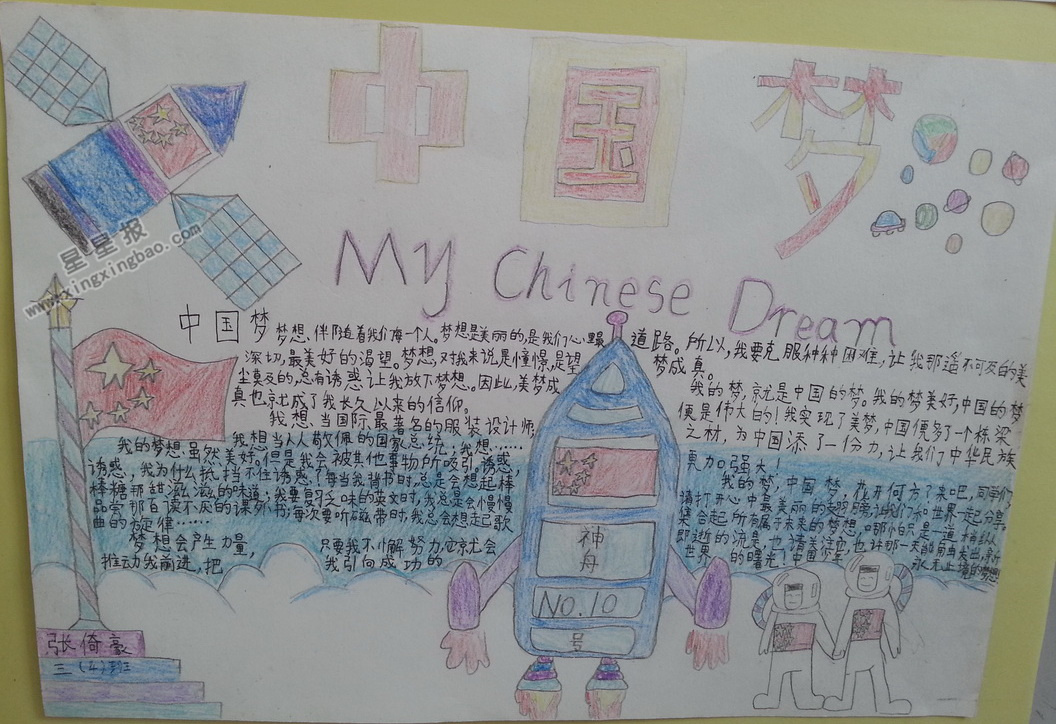 中国梦
My Chinese Dream
星星报
www.xingxingbao.com
中国梦
梦想,伴随着我们每一个人。梦想是美丽的,是我们心
深切,最美好的渴望。梦想,对我来说是憧憬,是望
尘莫及的,总有诱惑让我放下梦想。因此,美梦成
真也就成了我长久以来的信仰。
我想当国际最著名的服装设计师,
我想当人人敬佩的国家总统,我想……
我的梦想虽然美好。但是我会被其他事物所吸引。诱惑,
诱惑,我为什么抵挡不住诱惑?每当我背书时,总是会想起棒
棒糖那甜滋滋的味道;我要复习乏味的英文时,我总是会慢慢
品尝那百读不厌的课外书;每次要听磁带时,我总会想起歌
曲的旋律……
梦想会产生力量,只要我不懈努力,它就会
推动我前进,把我引向成功的
道路。所以,我要克服种种困难,让我那遥不可及的美
梦成真。
我的梦,就是中国的梦。我的梦美好,中国的梦
便是伟大的!我实现了美梦,中国便多了一个栋梁
之材,为中国添了一份力,让我们中华民族
更加强大!
我的梦,中国梦,
请打开心中最美丽的
集合起所有属于未来的梦想,哪怕只是
世界的曙光!中国梦,
神
舟
NO.10
号
张倚豪
三(4)班